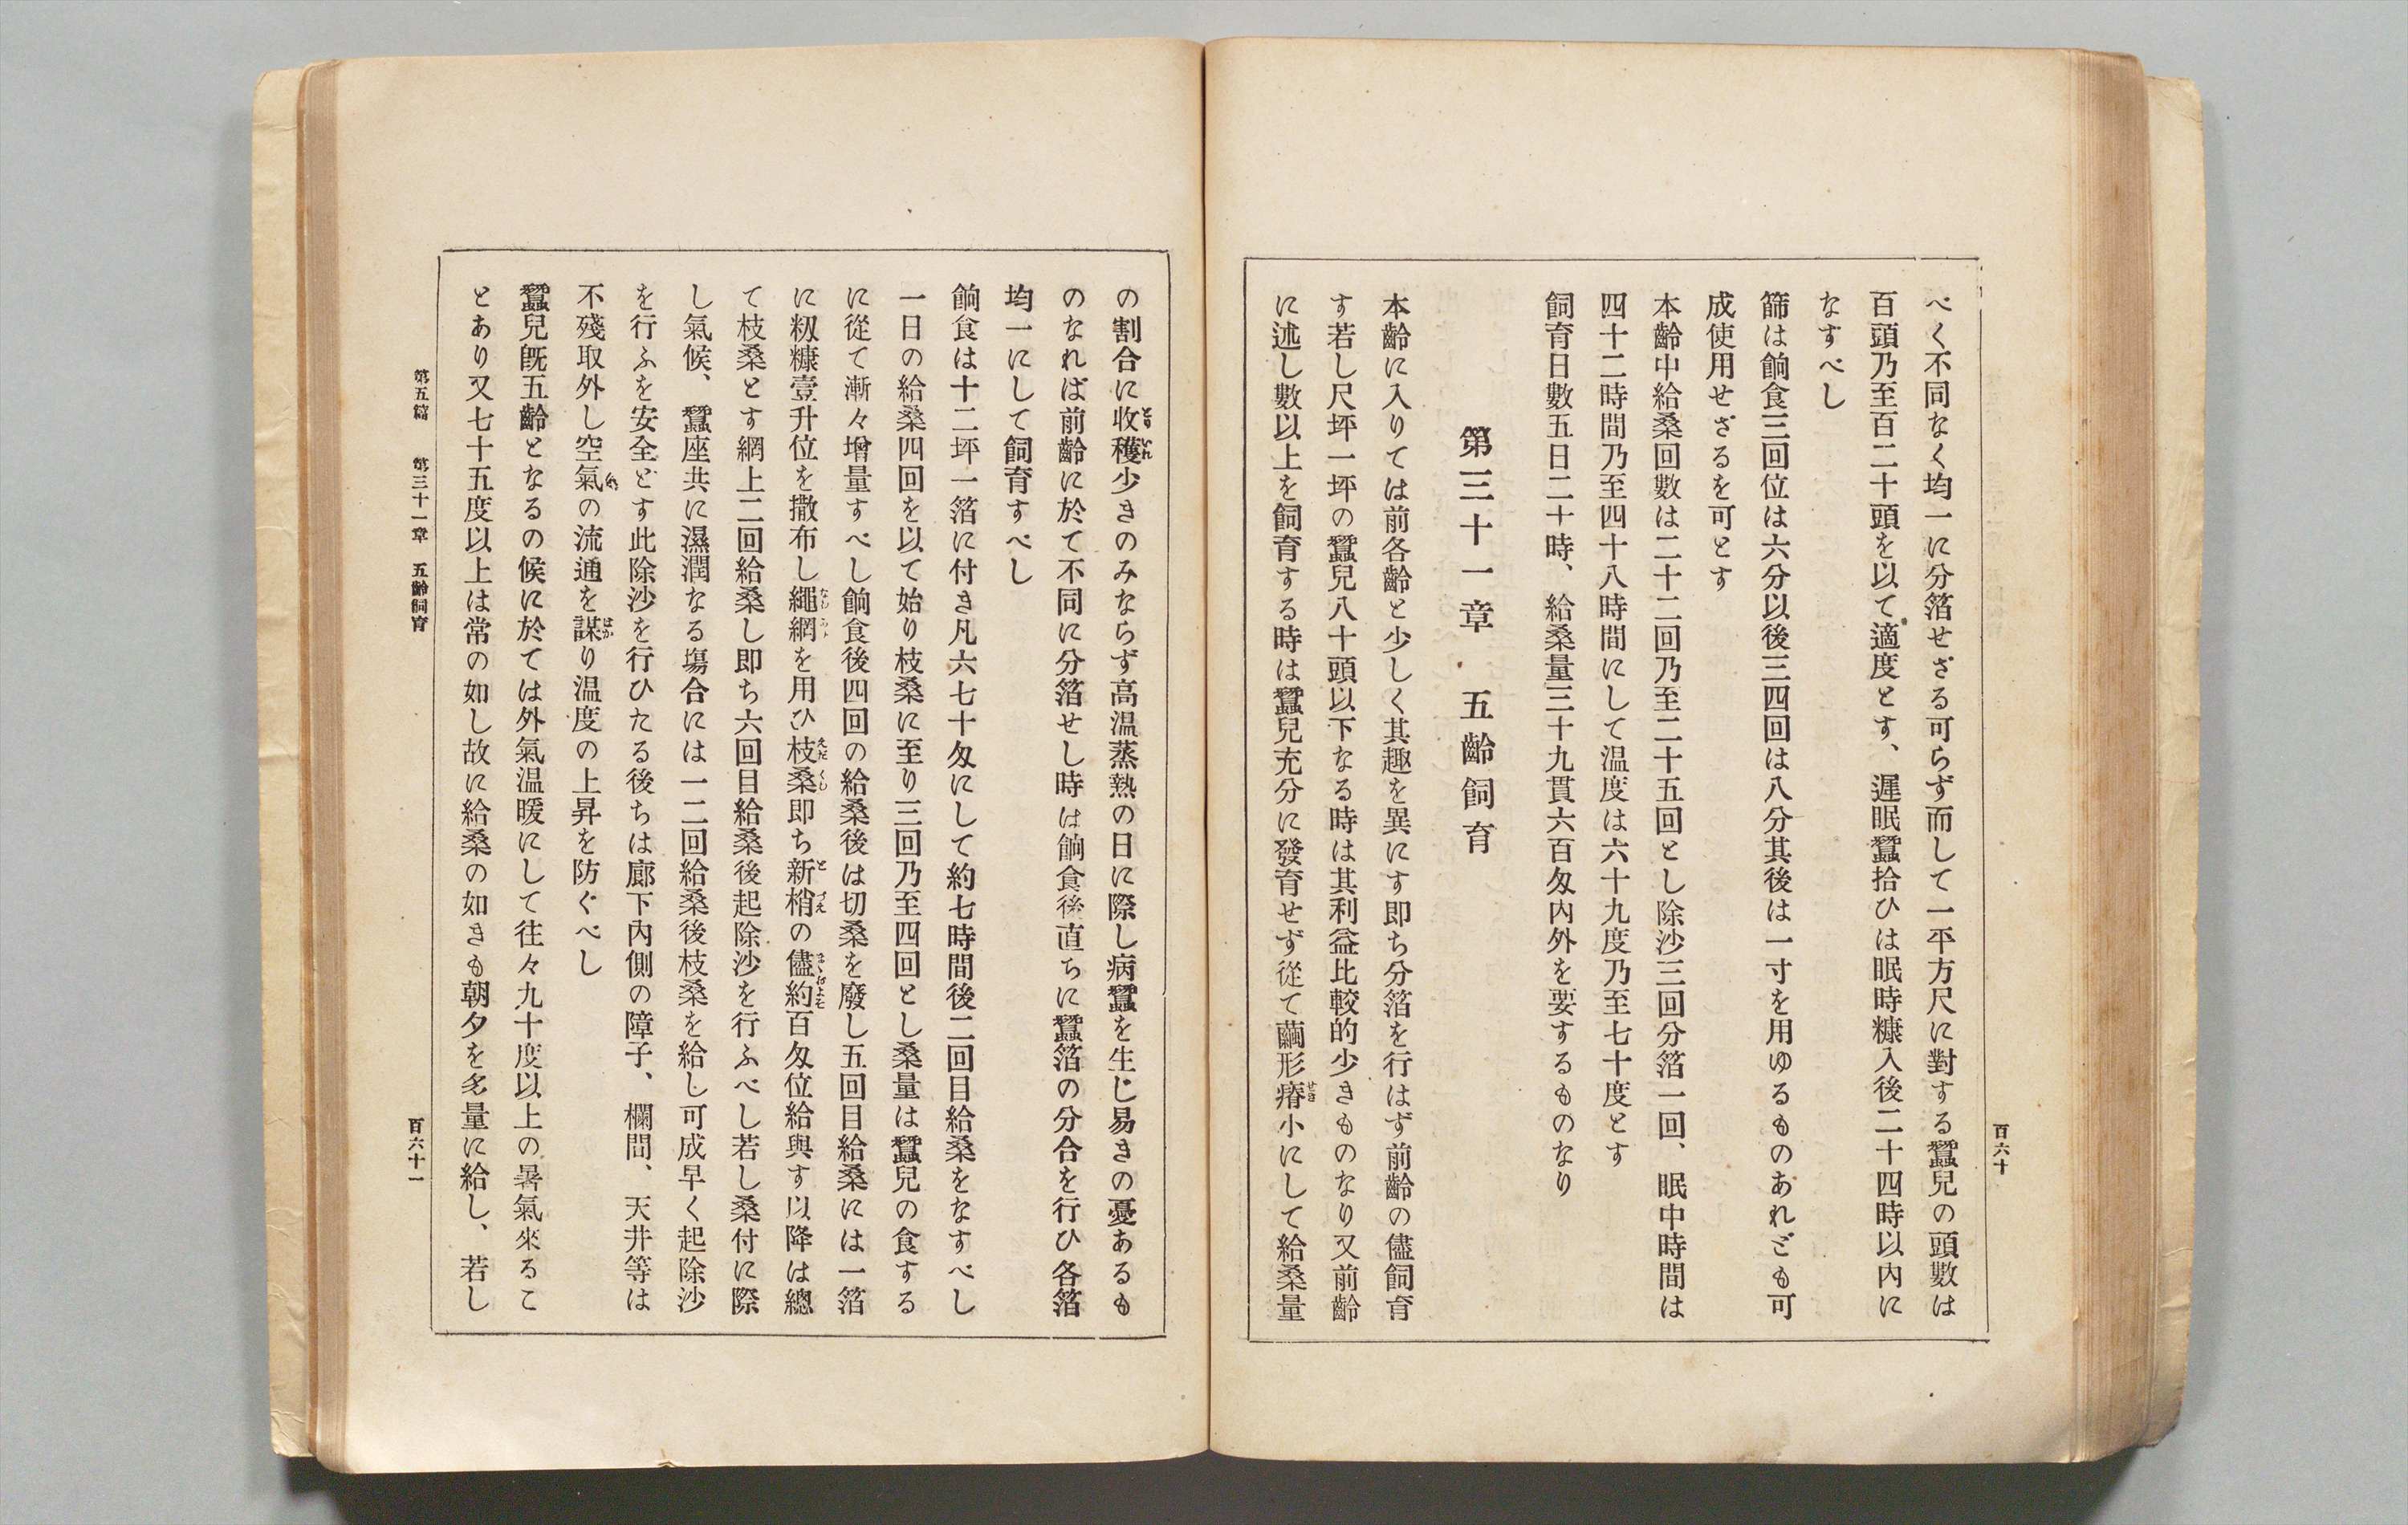 べく不同なく均一に分箔せざる可らず而して一平方尺に對する蠶兒の頭數は
百頭乃至百二十頭を以て適度とす、遲眠蠶拾ひは眠時糠入後二十四時以内に
なすべし
篩は餉食三回位は六分以後三四回は八分其後は一寸を用ゆるものあれども可
成使用せざるを可とす
本齡中給桑回數は二十二回乃至二十五回とし除沙三回分箔一回、眠中時間は
四十二時間乃至四十八時間にして温度は六十九度乃至七十度とす
飼育日數五日二十時、給桑量三十九貫六百匁内外を要するものなり
第三十一章 五齡飼育
本齡に入りては前各齡と少しく其趣を異にす即ち分箔を行はず前齡の儘飼育
す若し尺坪一坪の蠶兒八十頭以下なる時は其利益比較的少きものなり又前齡
に述し數以上を飼育する時は蠶兒充分に發育せず從て繭形瘠小にして給桑量
百六十
の割合に收穫少きのみならず高温蒸熱の日に際し病蠶を生じ易きの憂あるも
のなれば前齡に於て不同に分箔せし時は餉食後直ちに蠶箔の分合を行ひ各箔
均一にして飼育すべし
餉食は十二坪一箔に付き凡六七十匁にして約七時間後二回目給桑をなすべし
一日の給桑四回を以て始り枝桑に至り三回乃至四回とし桑量は蠶兒の食する
に從て漸々增量すべし餉食後四回の給桑後は切桑を廢し五回目給桑には一箔
に籾糠壹升位を撒布し繩網を用ひ枝桑即ち新梢の儘約百匁位給與す以降は總
て枝桑とす網上二回給桑し即ち六回目給桑後起除沙を行ふべし若し桑付に際
し氣候、蠶座共に濕潤なる塲合には一二回給桑後枝桑を給し可成早く起除沙
を行ふを安全とす此除沙を行ひたる後ちは廊下内側の障子、欄間、天井等は
不殘取外し空氣の流通を謀り温度の上昇を防ぐべし
蠶兒旣五齡となるの候に於ては外氣温暖にして往々九十度以上の暑氣來るこ
とあり又七十五度以上は常の如し故に給桑の如きも朝夕を多量に給し、若し
第五篇 第三十一章 五齡飼育
百六十一